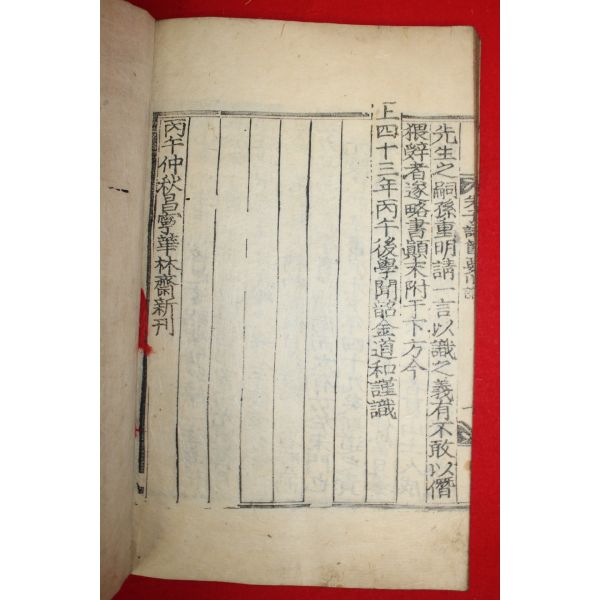 先生之嗣孫重明請一言以識之義有不敢以僭
猥辭者遂略書顚末附于下方今
上四十三年丙午後學聞韶金道和謹識
丙午仲秋昌寧華林齋新刊